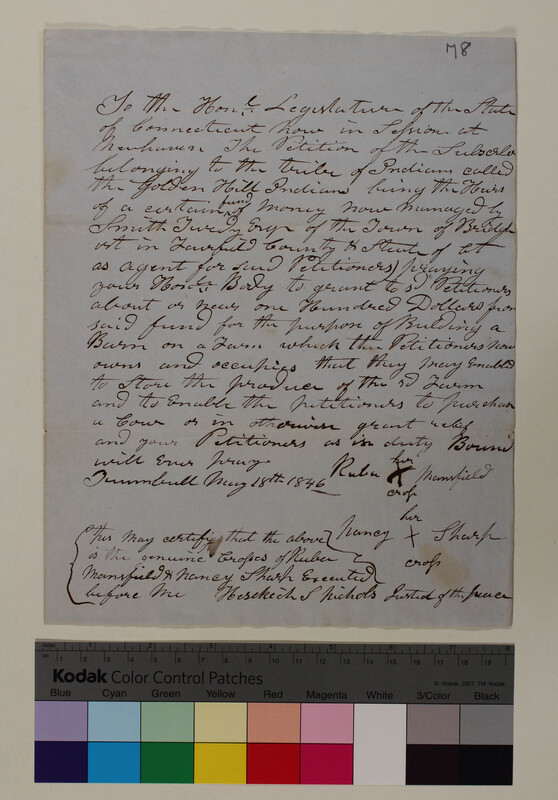 78
To the Honle. Legislature of the State
of Connecticut now in Session at
Newhaven The Petition of the Subscribe
belonging to the tribe of Indians called
the Golden Hill Indians being the Heirs
of a certain fund of Money now managed by
Smith Esqr of the Town of Bridgp
ort in Fairfield County & State of Ct
as agent for said Petitioners praying
your Honl. Body to grant to sd Petitioners
about or near one Hundred Dollars from
said fund for the purpose of Building a
Barn on a Farm which the Petitioners now
owns and occupies that they may Enabled
to Store the produce of the sd Farm
and to Enable the petitioners to purchase
a Cow or in otherwise grant relief
and your Petitioners as in duty Bound
will Ever pray
Trumbull May 18th 1846
Ruba her X cross Mansfield
Nancy her X cross Sharp
This may certify that the above
is the genuine Crosses of Ruba
Mansfield & Nancy Sharp Executed
before Me Hesekech S Nichols Justed of the peace
Kodak Color Control Patches
© Kodak, 2007 TM: Kodak
Blue Cyan Green Yellow Red Magenta White 3/Color Black